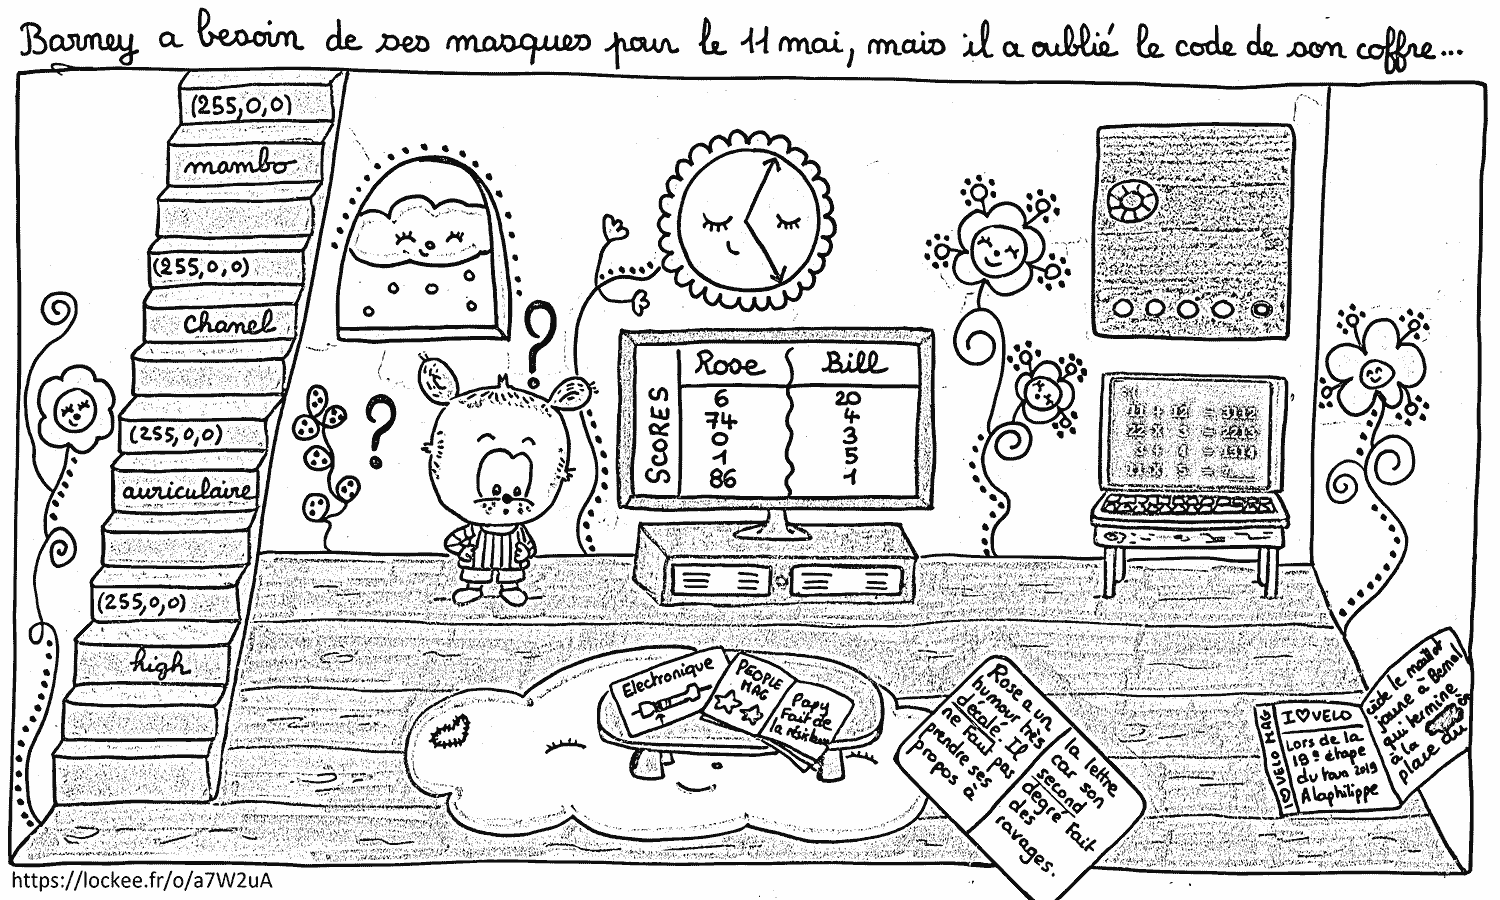 Barney a besoin de ses masques pour le 11 mai, mais il a oublié le code de son coffre...
(255,0,0)
mambo
(255,0,0)
chanel
(255,0,0)
auriculaire
(255,0,0)
high
?
?
SCORES
Rose Bill
6 20
74 4
0 3
1 5
86 1
11 + 12 = 3112
22 x 3 = 2213
9 + 4 = 1314
11 x 5 = ?
Electronique
PEOPLE
MAG
Papy
Fait de
la
Rose a un
humour très
décalé. Il
ne faut pas
prendre ses
propos à
la lettre
car son
second
degré fait
des
ravages.
I♡VELO MAG
I♡VELO
Lors de la
19e étape
du tour 2019
Alaphilippe
cède le maillot
jaune à Bernal
qui termine
à la
place du
https://lockee.fr/o/a7W2uA